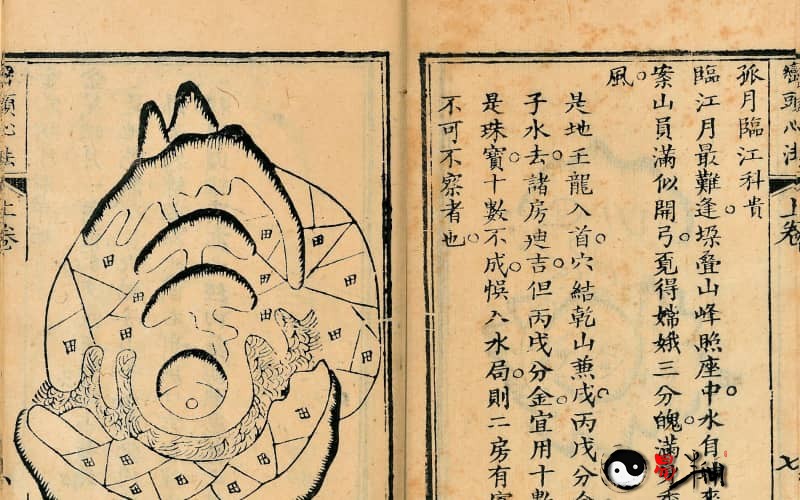 巒頭心法 上卷 七
孤月臨江科貴
臨江月最難逢垜叠山峰照座中水自
案山員滿似開弓覓得嫦娥三分魄滿
風
是地王龍入首穴結乾山兼戌丙戌分金
子水去諸房殀吉但丙戌分金宜用十數
是珠寶十數不成悞入水局則二房有
不可不察者也
田
田
田
田
田
田
田
田
田
田
田
田
巒頭心法 上卷